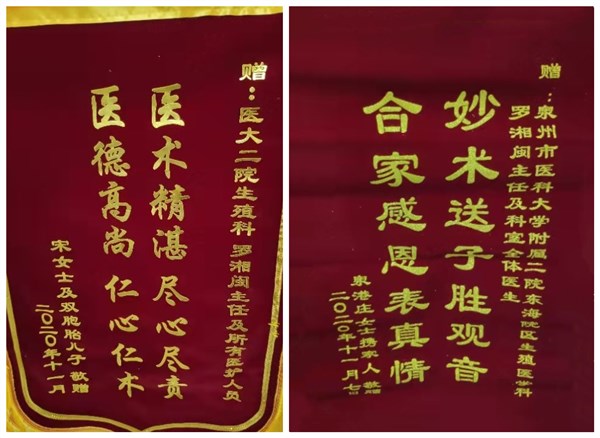 赠：医大二院生殖科 罗湘闽主任及所有医护人员
医术精湛 尽心尽责
医德高尚 仁心仁术
宋女士及双胞胎儿子 敬赠
二〇二〇年十一月
赠：泉州市医科大学附属二院东海院区生殖医学科
罗湘闽主任及科室全体医生
妙术送子胜观音
合家感恩表真情
泉港庄女士携家人 敬赠
二〇二〇年十一月七日